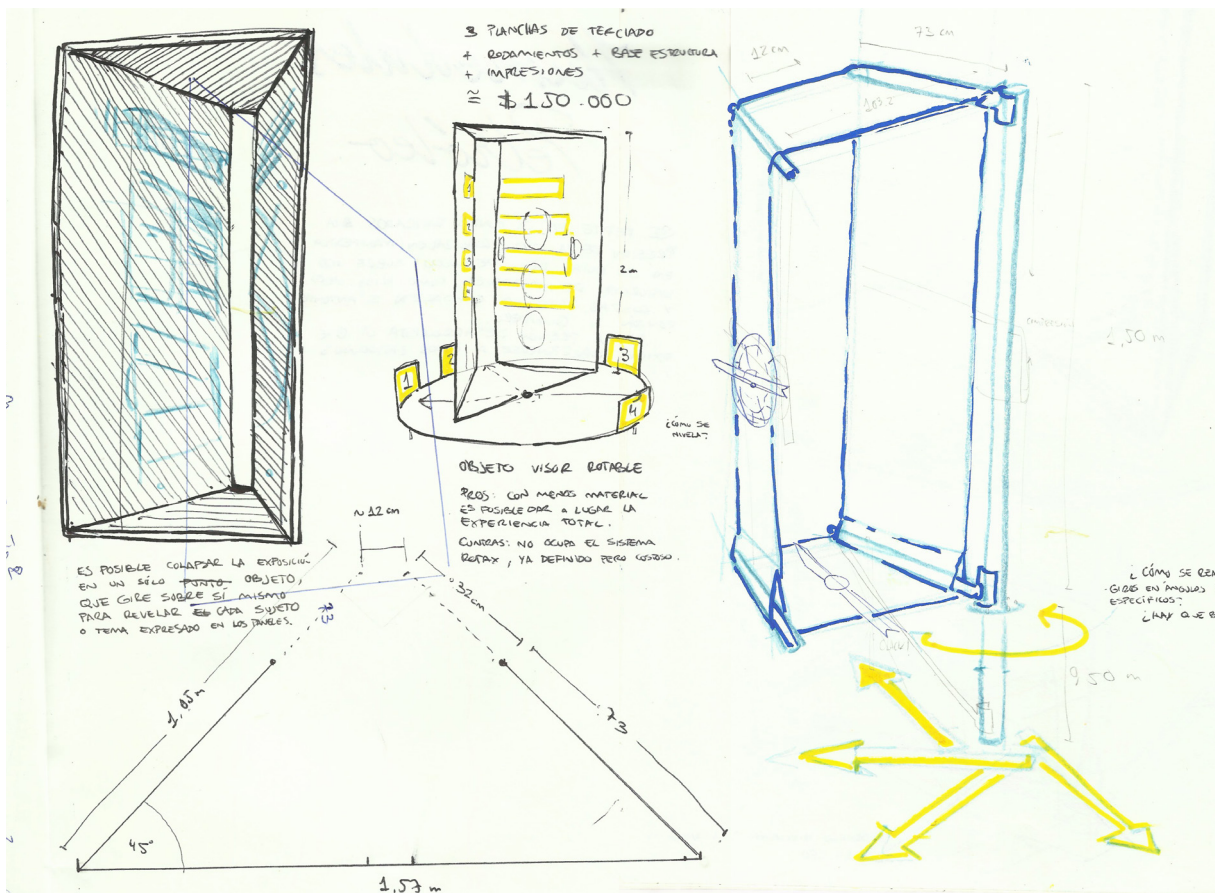 3 PLANCHAS DE TERCIADO
+ RODAMIENTOS + BASE ESTRUCTURA
+ IMPRESIONES
≅ $ 150.000
2 m
1
2
3
4
¿CÓMO SE
NIVELA?
OBJETO VISOR ROTABLE
PROS: CON MENOS MATERIAL
ES POSIBLE DAR A LUGAR LA
EXPERIENCIA TOTAL.
CONTRAS: NO OCUPA EL SISTEMA
ROTAX, YA DEFINIDO PERO COSTOSO.
ES POSIBLE COLAPSAR LA EXPOSICIÓN
EN UN SÓLO PUNTO OBJETO
QUE GIRE SOBRE SÍ MISMO
PARA REVELAR CADA SUJETO
O TEMA EXPRESADO EN LOS PANELES.
~12 cm
32cm
73
1,05m
73
45°
1,57 m
12 cm
73 cm
103.2
1,50 m
¿CÓMO SE
GIROS EN ÁNGULOS
ESPECÍFICOS?
¿HAY QUE
50 m